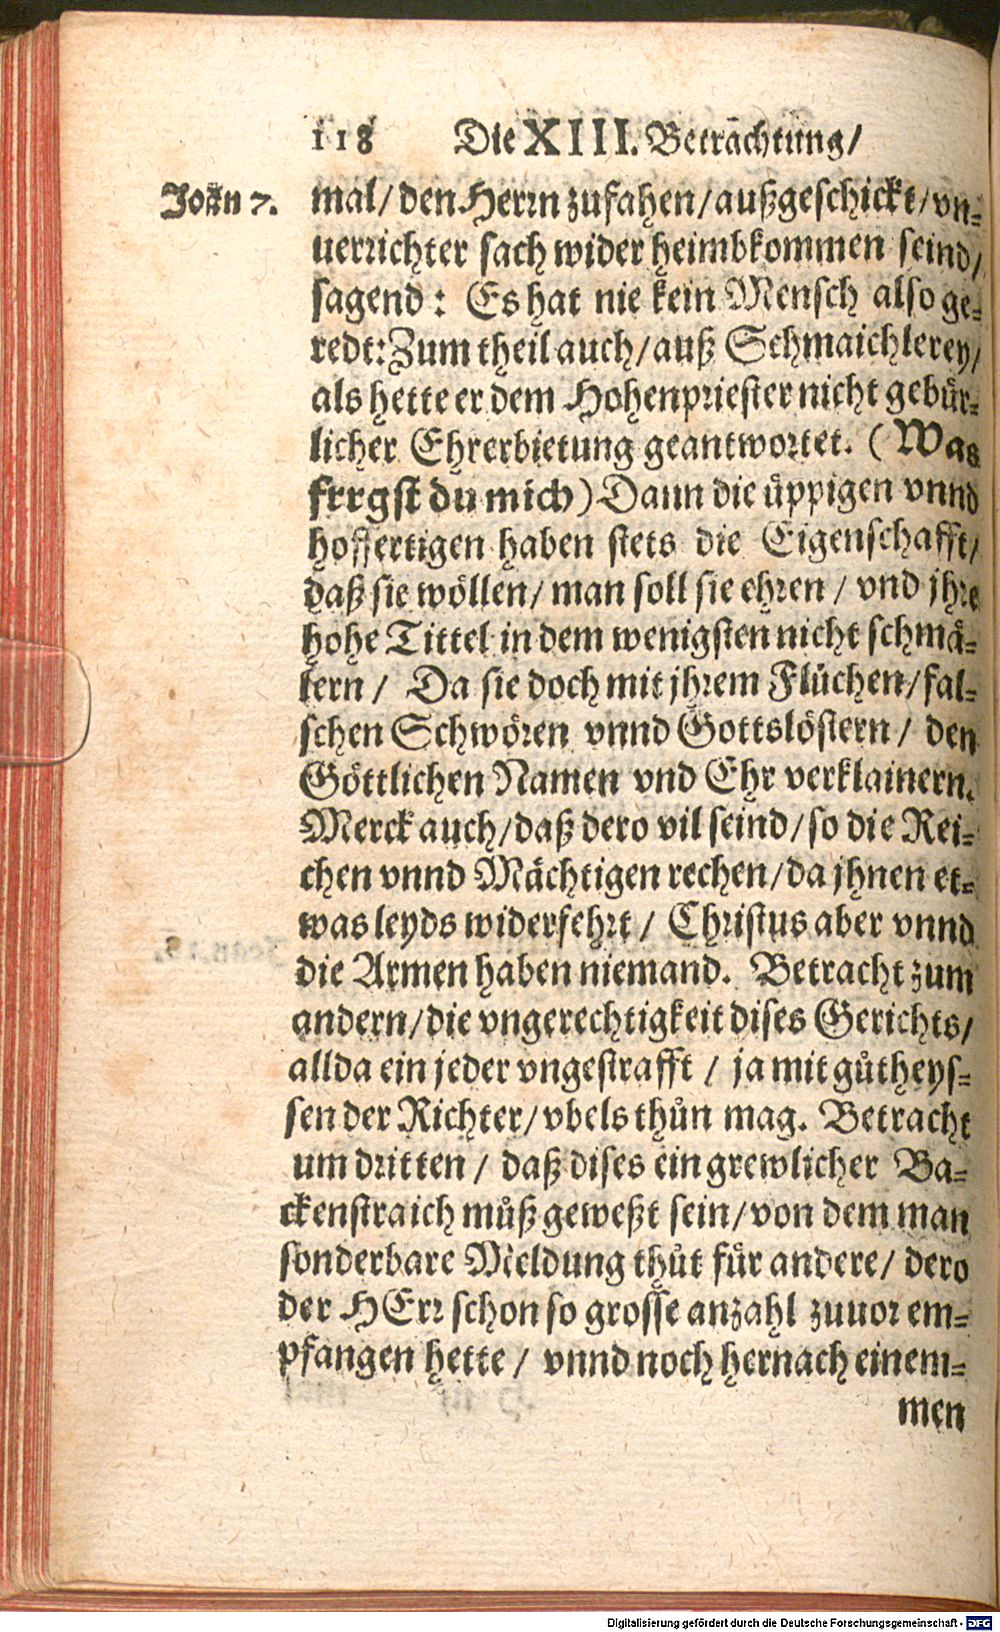 118 Die XIII. Betrachtung/
Joan 7.
mal/ den Herrn zufahen/ außgeschickt/ vn-
uerrichter sach wider heimbkommen seind/
sagend: Es hat nie kein Mensch also ge-
redt: Zum theil auch/ auß Schmaichlerey/
als hette er dem Hohenpriester nicht gebür-
licher Ehrerbietung geantwortet. (Was
frrgst du mich) Dann die üppigen vnnd
hoffertigen haben stets die Eigenschafft/
daß sie wöllen/ man soll sie ehren/ vnd jhre
hohe Tittel in dem wenigsten nicht schmä-
lern/ Da sie doch mit jhrem Flüchen/ fal-
schen Schwören vnnd Gottslöstern/ den
Göttlichen Namen vnd Ehr verklainern.
Merck auch/ daß dero vil seind/ so die Rei-
chen vnnd Mächtigen rechen/ da jhnen et-
was leyds widerfehrt/ Christus aber vnnd
die Armen haben niemand. Betracht zum
andern/ die vngerechtigkeit dises Gerichts/
allda ein jeder vngestrafft/ ja mit gůtheys-
sen der Richter/ vbels thůn mag. Betracht
um dritten/ daß dises ein grewlicher Ba-
ckenstraich můß geweßt sein/ von dem man
sonderbare Meldung thůt für andere/ dero
der HErr schon so grosse anzahl zuuor em-
pfangen hette/ vnnd noch hernach einem-
men
Digitalisierung gefördert durch die Deutsche Forschungsgemeinschaft - DFG